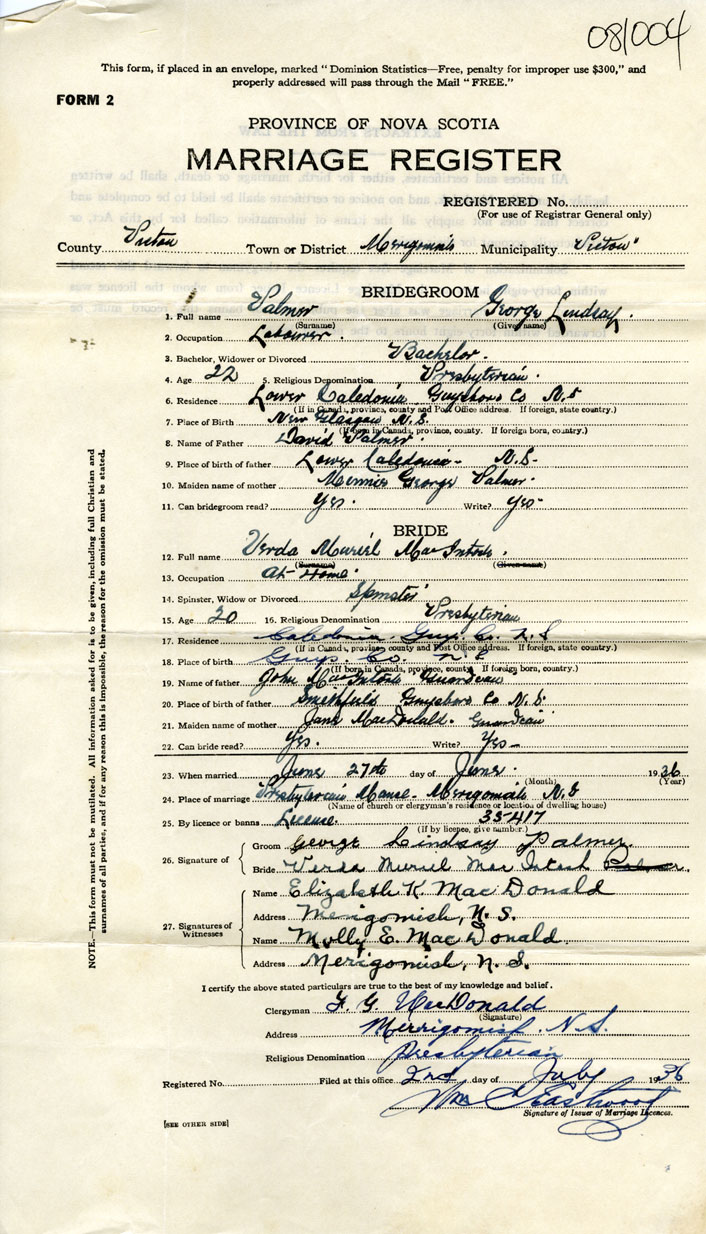 081004
This form, if placed in an envelope, marked "Dominion Statistics—Free, penalty for improper use $300," and
properly addressed will pass through the Mail "FREE."
FORM 2
PROVINCE OF NOVA SCOTIA
MARRIAGE REGISTER
REGISTERED No.
(For use of Registrar General only)
County Pictou Town or District Merigomish Municipality Pictou
BRIDEGROOM
1. Full name Palmer George Lindsay.
(Surname) (Given name)
2. Occupation Labourer.
3. Bachelor, Widower or Divorced Bachelor.
4. Age 22 5. Religious Denomination Presbyterian.
6. Residence Lower Caledonia Guysboro Co N.S
(If in Canada, province, county and Post Office address. If foreign, state country.)
7. Place of Birth New Glasgow N.S.
(If born in Canada, province, county. If foreign born, country.)
8. Name of Father David Palmer.
9. Place of birth of father Lower Caledonia- N.S-
10. Maiden name of mother Minnie George Palmer.
11. Can bridegroom read? Yes. Write? Yes-
BRIDE
12. Full name Verda Muriel MacIntosh.
(Surname) (Given name)
13. Occupation At-Home
14. Spinster, Widow or Divorced Spinster
15. Age 20 16. Religious Denomination Presbyterian
17. Residence Caledonia Guys. Co. N.S
(If in Canada, province, county and Post Office address. If foreign, state country.)
18. Place of birth Guys. Co. N.S
(If born in Canada, province, county. If foreign born, country.)
19. Name of father John MacIntosh Guardian
20. Place of birth of father Smithfield Guysboro Co N.S.
21. Maiden name of mother Jane MacDonald. Guardian
22. Can bride read? Yes. Write? Yes-
23. When married June 27th day of June. 1936
(Month) (Year)
24. Place of marriage Presbyterian Manse- Merigomish N.S
(Name of church or clergyman's residence or location of dwelling house)
25. By licence or banns Licence. 35417
(If by licence, give number.)
26. Signature of
Groom George Lindsay Palmer.
Bride Verda Muriel Mac Intosh Palmer.
27. Signatures of Witnesses
Name Elizabeth K. Mac Donald
Address Merigomish, N.S.
Name Molly E. Mac Donald
Address Merigomish, N.S.
I certify the above stated particulars are true to the best of my knowledge and belief.
Clergyman F. G. MacDonald
(Signature)
Address Merrigomish. N.S.
Religious Denomination Presbyterian
Registered No. Filed at this office 2nd day of July 1936
Wm Eastwood
Signature of Issuer of Marriage Licences.
[SEE OTHER SIDE]
NOTE.—This form must not be mutilated. All information asked for is to be given, including full Christian and
surnames of all parties, and if for any reason this is impossible, the reason for the omission must be stated.